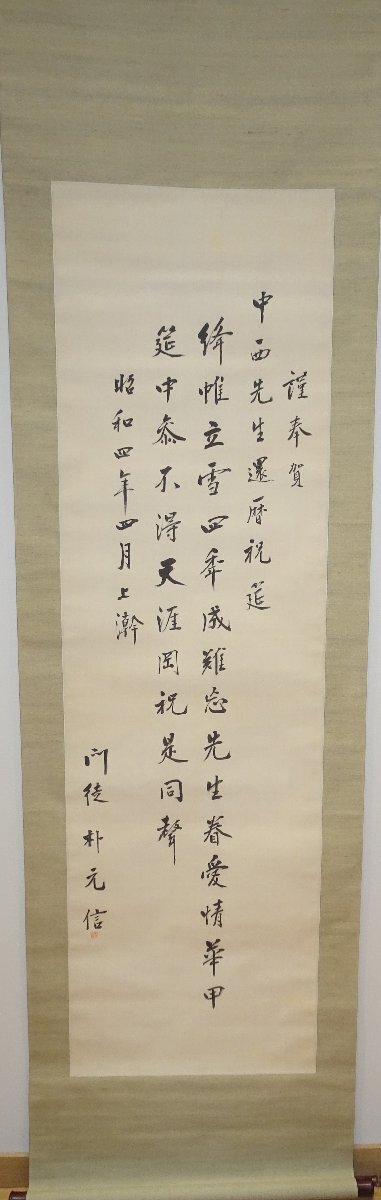 謹奉賀
中西先生還暦祝筵
絳帷立雪四秊成難忘先生眷愛情華甲
筵中參不得天涯岡祝是同聲
昭和四年四月上澣
門徒朴元信